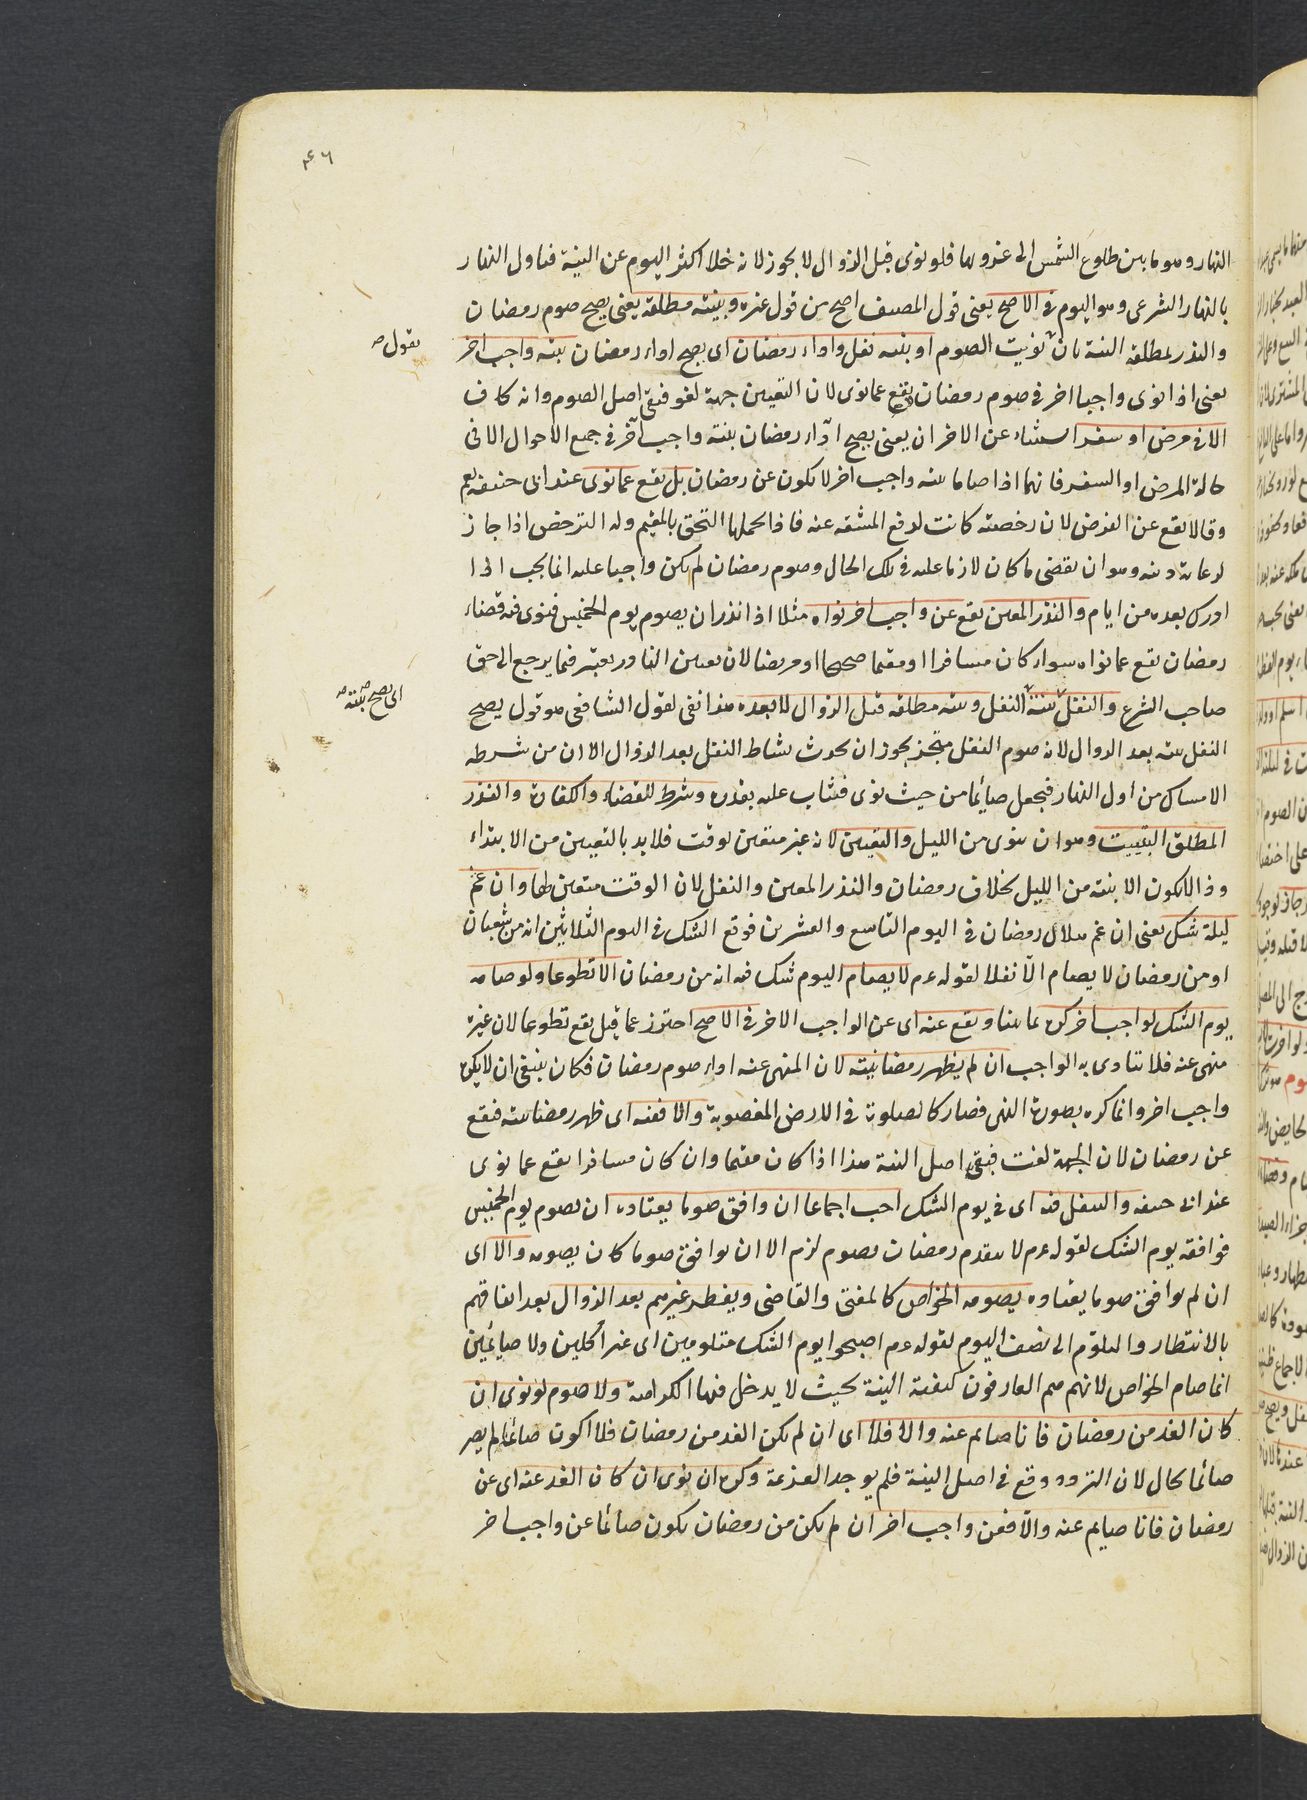 ٤٦
النهار وهو ما بين طلوع الشمس الى غروبها فلو نوى قبل الزوال لا يجوز لانه خلا اكثر اليوم عن النية فناول النهار
بالنهار الشرعى وهو اليوم في الاصح يعنى قول المصنف اصح من قول غيره وبنيته مطلقة يعنى يصح صوم رمضان
والنذر بمطلقة النية بان يقول نويت الصوم او بنية نفل واداء رمضان اى يصح اداء رمضان بنية واجب اخر
يعنى اذا نوى واجبا اخر في صوم رمضان يقع عما نوى لان التعيين جهة لغو فبقى اصل الصوم وانه كاف
الا في مرض او سفر استثناء عن الاخر ان يعنى يصح اداء رمضان بنية واجب آخر في جميع الاحوال الا في
حالة المرض او السفر فانهما اذا صاما بنية واجب اخر لا يكون عن رمضان بل يقع عما نوى عند ابى حنيفة
وقالا يقع عن الفرض لان رخصته كانت لدفع المشقة عنه فاذا تحملها التحق بالمقيم وله الترخص اذا جاز
لرعاية دينه وهو ان يقضى ما كان لازما عليه في تلك الحال وصوم رمضان لم يكن واجبا عليه انما يجب اذا
ادرك بعده من ايام والنذر المعين يقع عن واجب اخر نواه مثلا اذا نذر ان يصوم يوم الخميس فنوى فيه قضاء
رمضان يقع عما نواه سواء كان مسافرا او مقيما صحيحا او مريضا لان تعيين الناذر يعتبر فيما يرجع الى حق
صاحب الشرع والنفل بنية النفل وبنية مطلقة قبل الزوال لا بعده هذا نفى لقول الشافعى هو قول يصح
النفل بنية بعد الزوال لان صوم النفل متجز يجوز ان يحدث نشاط النفل بعد الزوال الا ان من شرطه
الامساك من اول النهار فيجعل صائما من حيث نوى فيثاب عليه بقدره وشرط للقضاء والكفارة والنذر
المطلق التبييت وهو ان ينوى من الليل والتعيين لانه غير متعين لوقت فلا بد بالتعيين من الابتداء
وذا لا يكون الا بنية من الليل بخلاف رمضان والنذر المعين والنفل لان الوقت متعين لها وان غم
ليلة شك يعنى ان غم هلال رمضان في اليوم التاسع والعشرين فوقع الشك في اليوم الثلاثين انه من شعبان
او من رمضان لا يصام الّا نفلا لقوله عم لا يصام اليوم شك فيه انه من رمضان الا تطوعا ولو صامه
يوم الشك لواجب اخر كره عما بينا ويقع عنه اى عن الواجب الاخر في الاصح احترز عما قيل يقع تطوعا لان غيره
منهى عنه فلا يتادى به الواجب ان لم يظهر رمضانيته لان المنهى عنه اداء صوم رمضان فكان ينبغى ان لا يكره
واجب اخر وانما كره بصورة النهى فصار كالصلوة في الارض المغصوبة والا فعنه اى ظهر رمضانيته فيقع
عن رمضان لان الجهة لغت فبقى اصل النية هذا اذا كان مقيما وان كان مسافرا يقع عما نوى
عند ابى حنيفة والتنفل فيه اى في يوم الشك احب اجماعا ان وافق صوما يعتاده ان يصوم يوم الخميس
فوافقه يوم الشك لقوله عم لا يتقدم رمضان بصوم لزم الا ان يوافق صوما كان يصومه والا اى
ان لم يوافق صوما يعتاده يصومه الخواص كالمفتى والقاضى ويفطر غيرهم بعد الزوال بعد اتفاقهم
بالانتظار والتلوّم الى نصف اليوم لقوله عم اصبحوا يوم الشك متلومين اى غير آكلين ولا صائمين
انما صام الخواص لانهم هم العارفون كيفية النية بحيث لا يدخل فيها الكراهة ولا صوم لو نوى ان
كان الغد من رمضان فانا صايم عنه والا فلا اى ان لم يكن الغد من رمضان فلا اكون صائما لم يصر
صائما بحال لان التردد وقع في اصل النية فلم يوجد العزيمة وكره ان نوى ان كان الغد عنه اى عن
رمضان فانا صايم عنه والّا فعن واجب اخر ان لم يكن من رمضان يكون صائما عن واجب اخر
يقول صح
اى يصح بنيته صح